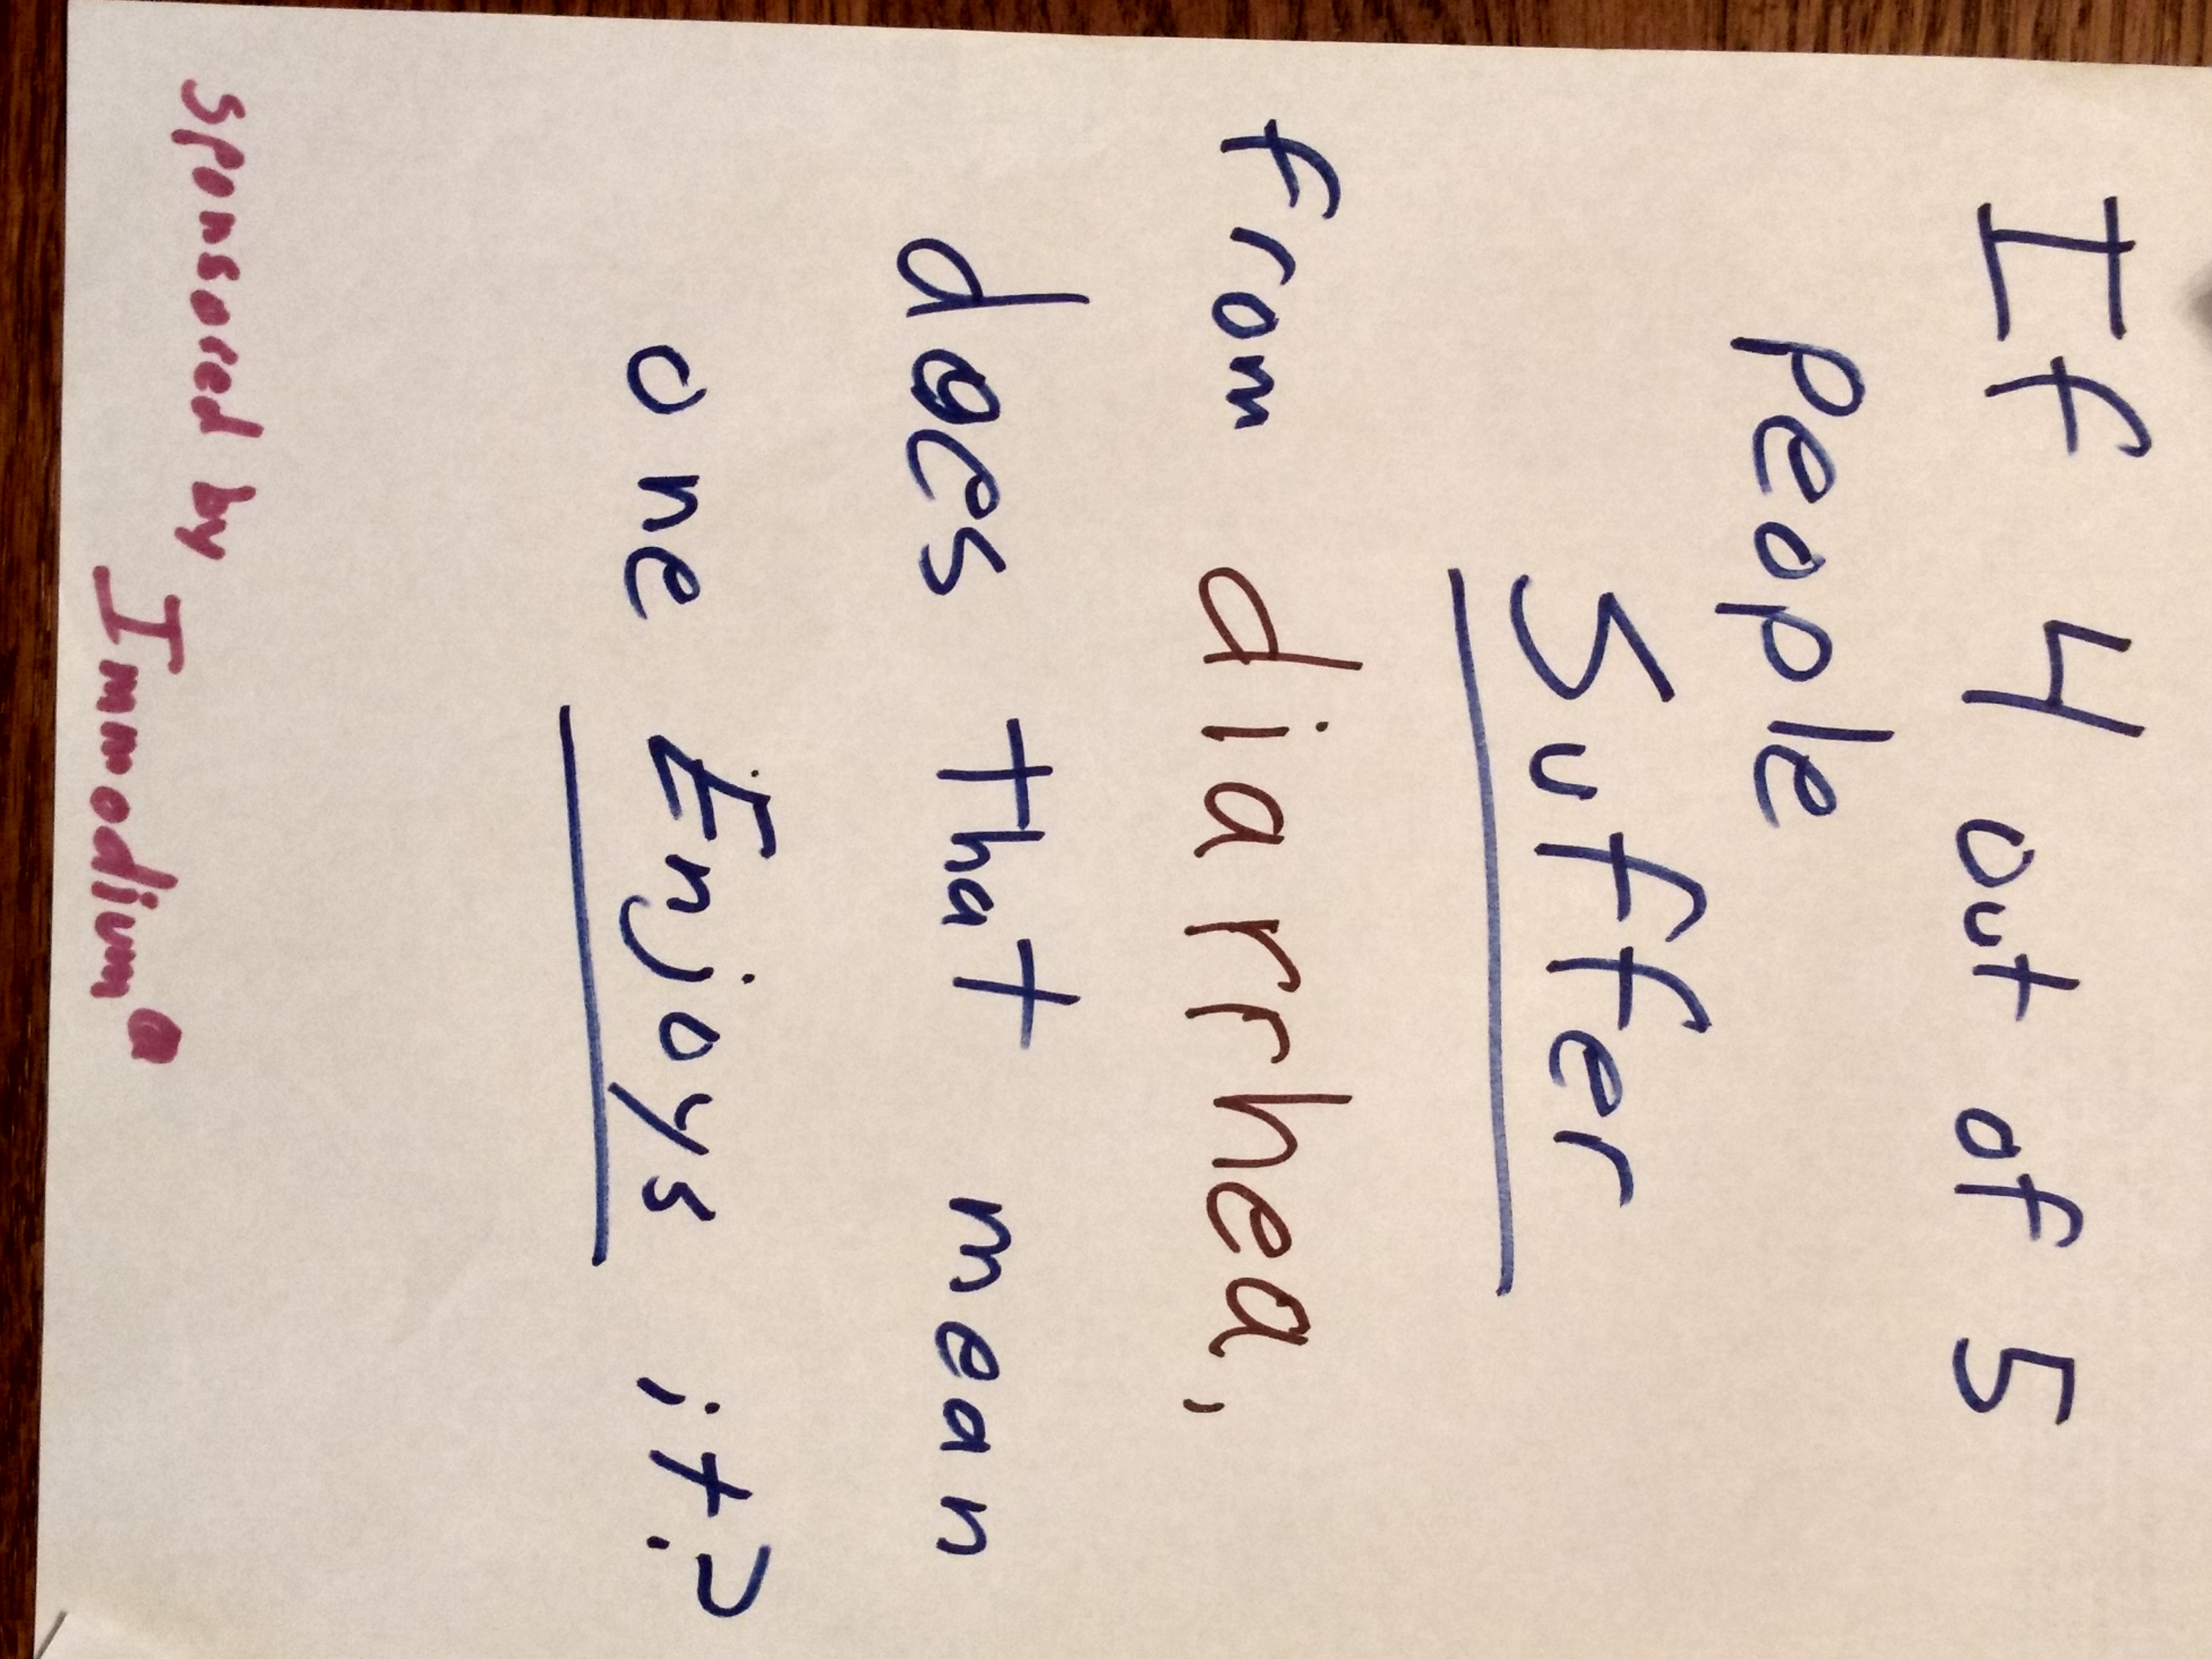 If 4 out of 5
People
Suffer
from diarrhea,
does that mean
one Enjoys it?
sponsored by
Immodium ®